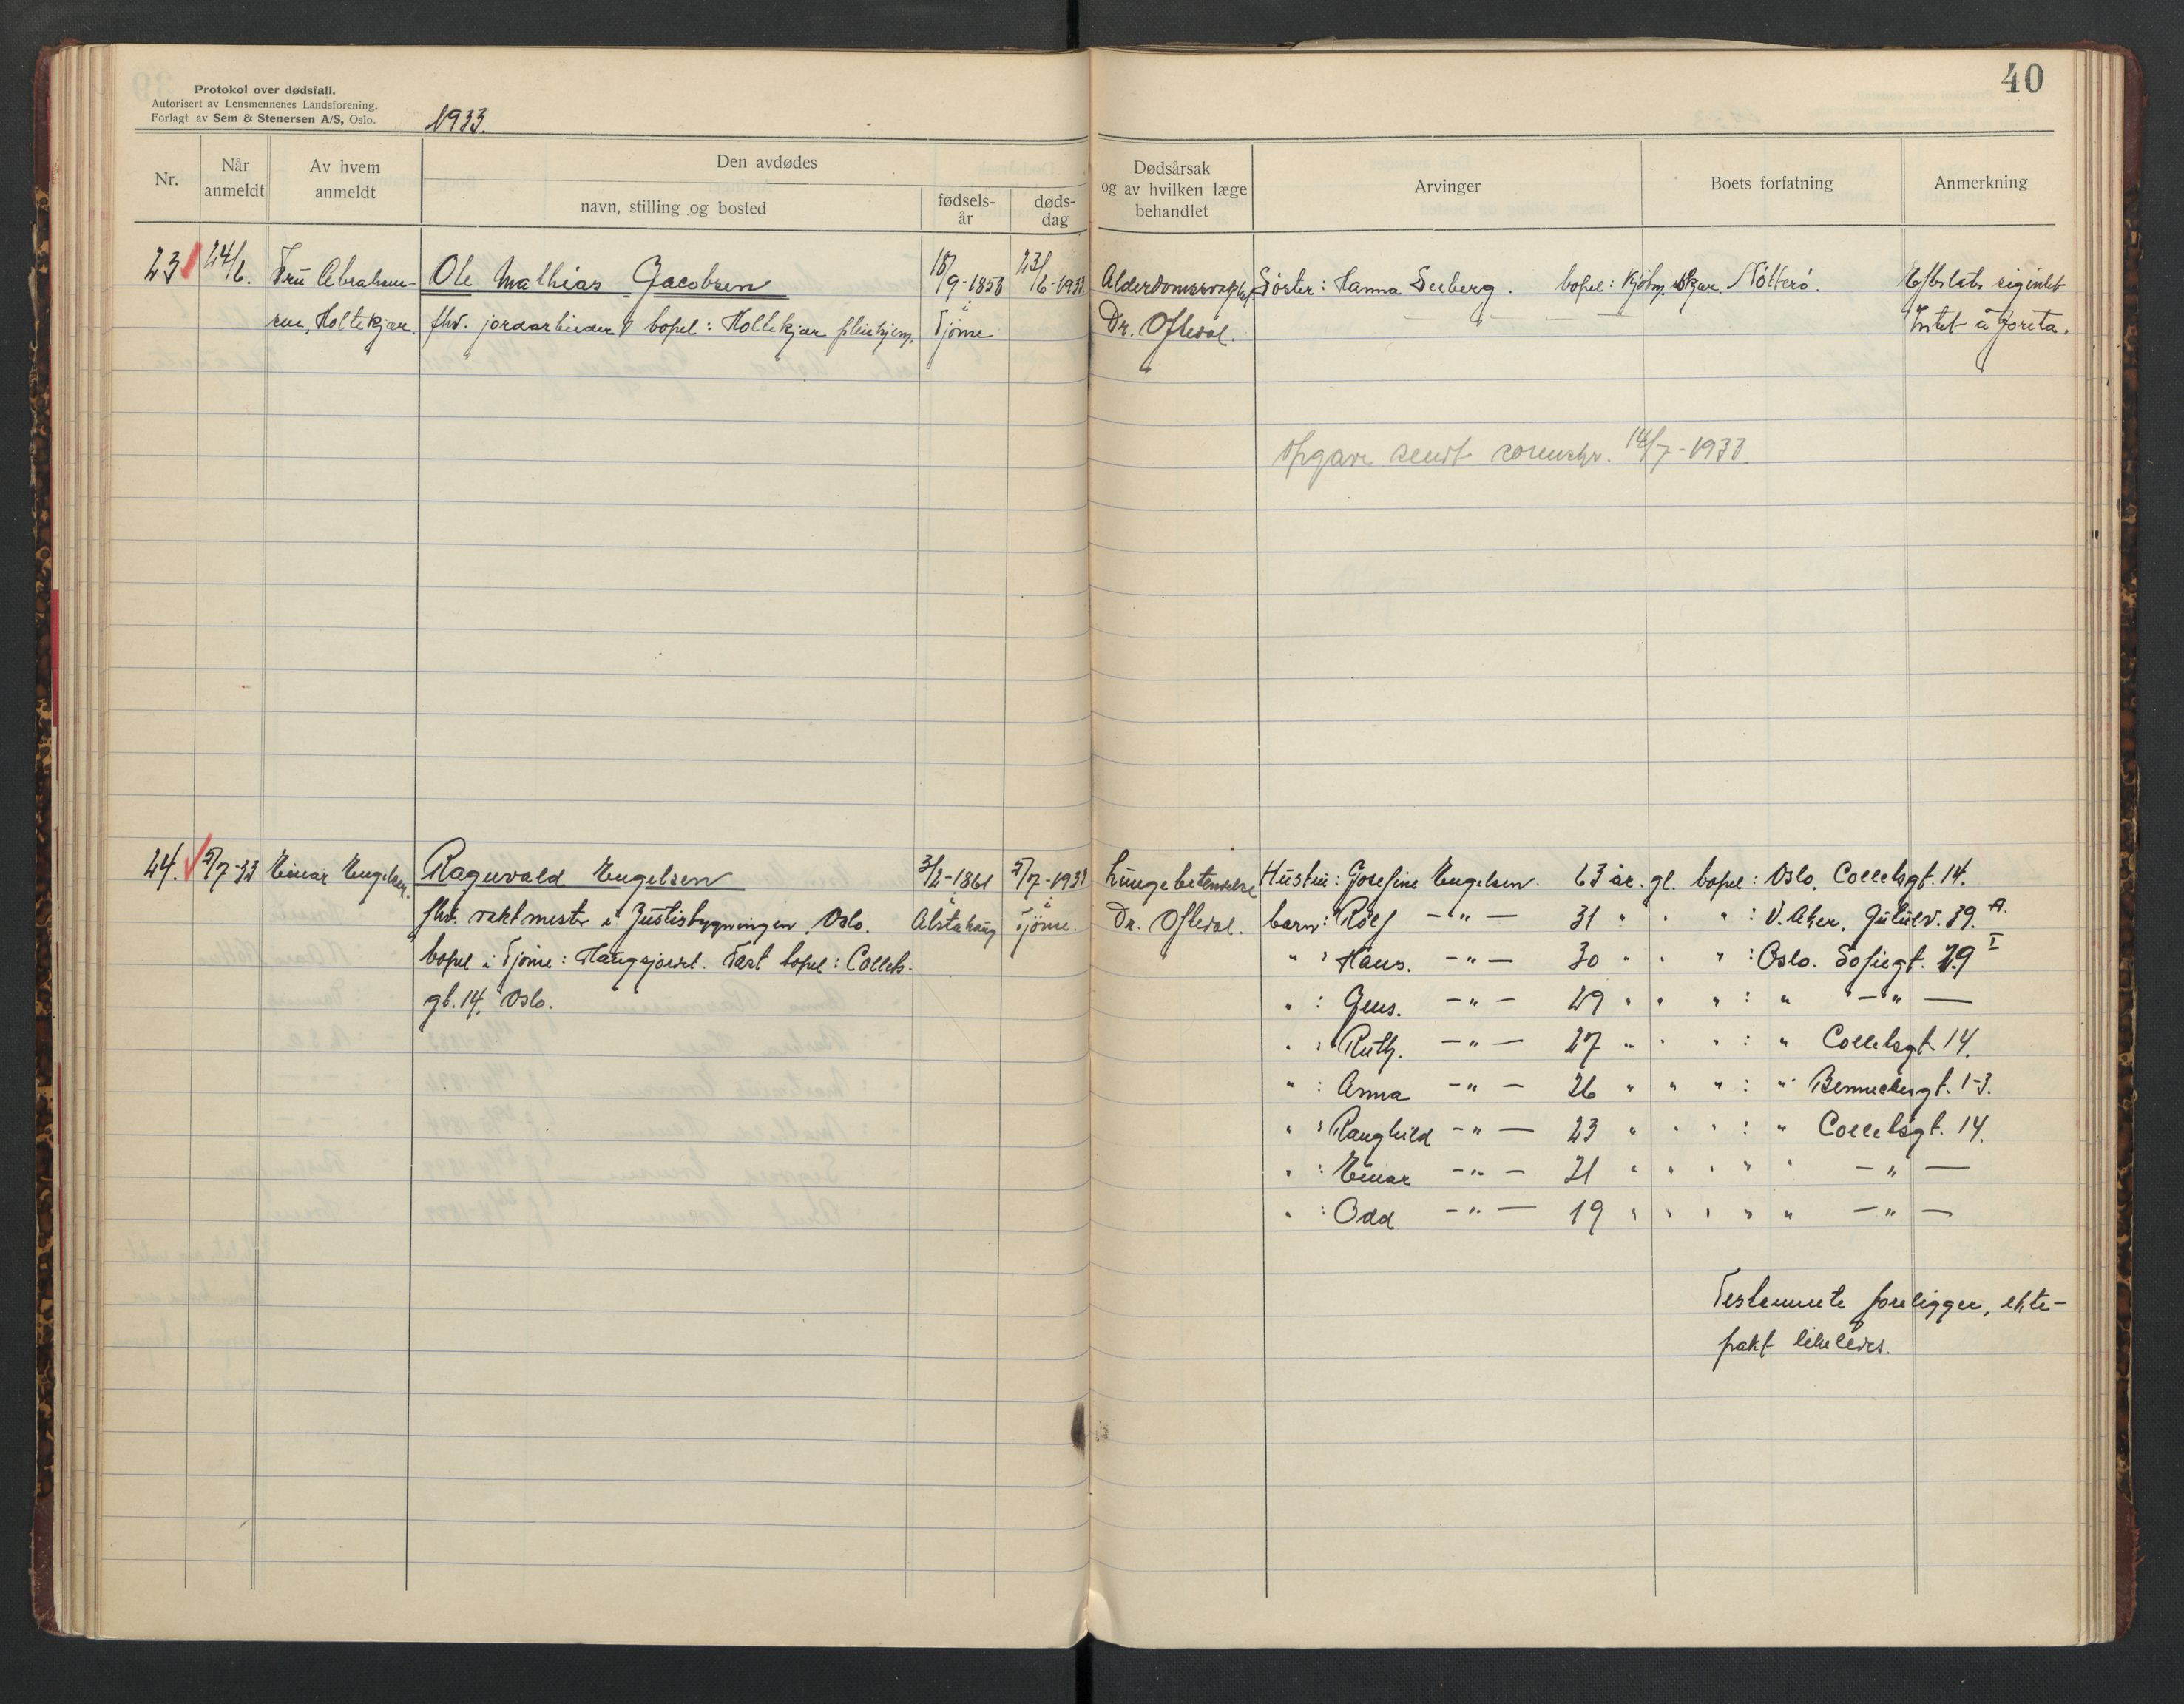 Protokol over dødsfall.
Autorisert av Lensmennenes Landsforening.
Forlagt av Sem & Stenersen A/S, Oslo.
1933.
40
Nr.
Når anmeldt
Av hvem anmeldt
Den avdødes
navn, stilling og bosted
fødsels-år
døds-dag
Dødsårsak og av hvilken læge behandlet
Arvinger
Boets forfatning
Anmerkning
23 24/6. Fru Abraham- Ole Mathias Jacobsen 18/9-1853 23/6-1933 Søster: Hanna Seeberg. bopel: Nötterö.
sen, Holtekjær. fhv. jordarbeider bopel: Holtekjær pleiehjem, Tjöme Dr. Oftedal. Intet å
Opgave sendt sorenskr. 14/7-1933.
24. 5/7-33 Einar Engelsen. Ragnvald Engelsen 3/2-1861 5/7-1933 Lungebetendelse Hustru: Josefine Engelsen. 63 år. gl. bopel: Oslo, Collettsgt. 14.
fhv. vaktmester i Justisbygningen, Oslo. i Alstahaug i Tjöme. Dr. Oftedal. barn: Rolf -"- 31 " " " : V. Aker, 39. A.
bopel i Tjöme: Haugsjordet. Fast bopel: Colletts- " : Hans. -"- 30 " " " : Oslo. Sofiegt. 79 I
gt. 14, Oslo. " : Jens. -"- 29 " " " : " -"-
" : Ruth. -"- 27 " " " : " Collettsgt. 14.
" : Anna -"- 26 " " " : " Bennechesgt. 1-3.
" : Ragnhild -"- 23 " " " : " Collettsgt. 14.
" : Einar -"- 21 " " " " " -"-
" : Odd -"- 19 " " " " " -"-
Testamente foreligger, ekte-
pakt likeledes.